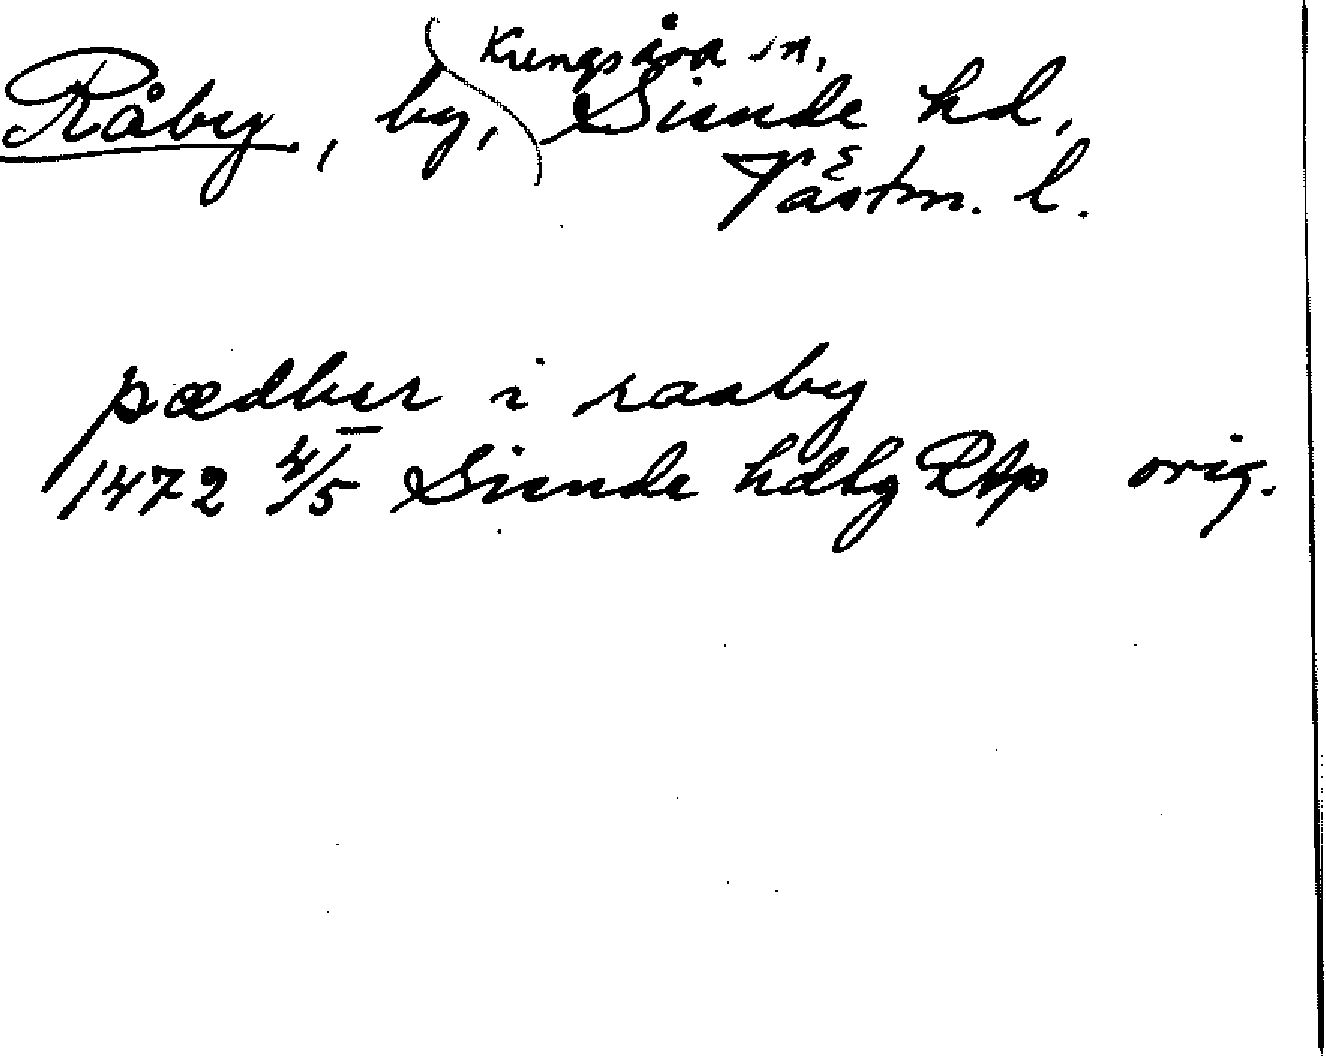 Kungsåra sn,
Råby, by, Siende hd,
Västm. l.
pædhur i raaby
1472 4/5 Siende hdhg Rtp orig.